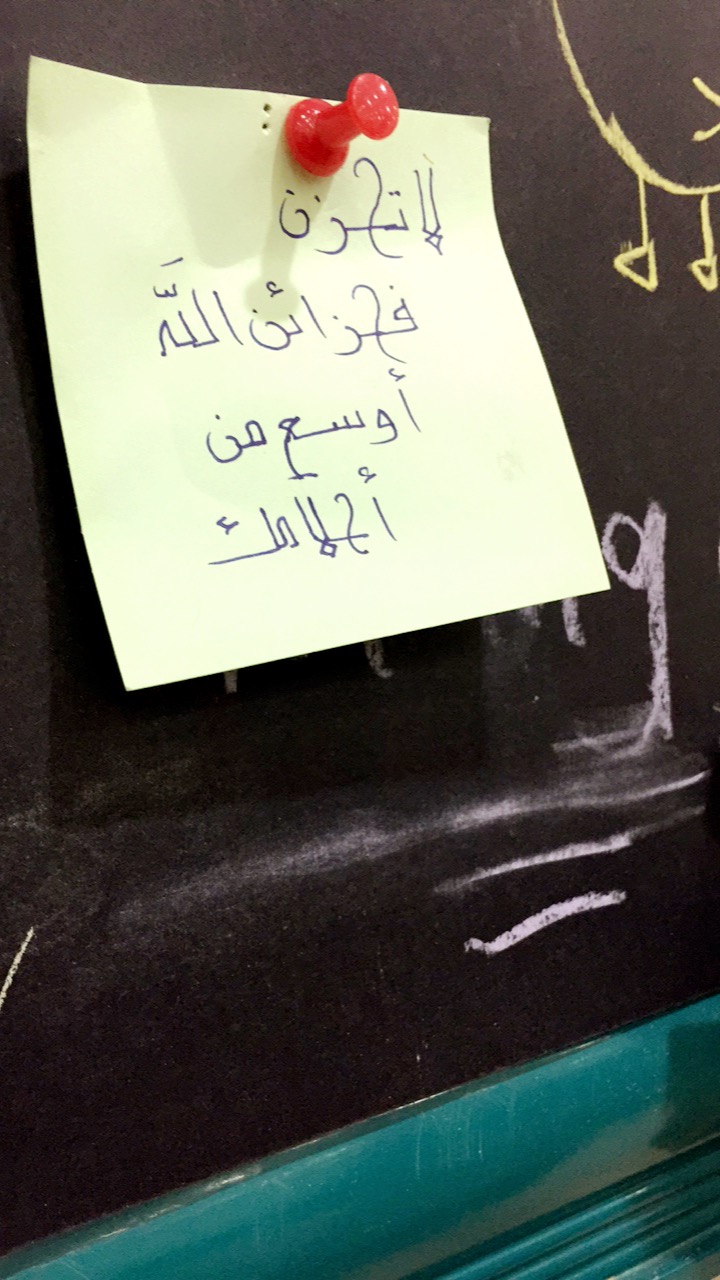 لا تحزن
فخزائن اللَّه
أوسع من
أحلامك